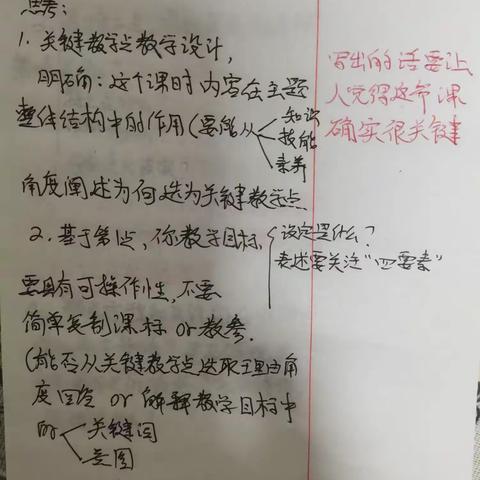 思考:
1. 关键教学点教学设计,
明确:这个课时内容在主题
整体结构中的作用(要能从
知识
技能
素养
角度阐述为何选为关键教学点
2. 基于第1点,你教学目标
设定是什么?
表述要关注“四要素”
要具有可操作性,不要
简单复制课标 or 教参.
(能否从关键教学点选取理由角
度回答 or 解释教学目标中
的
关键词
意图
写出的话要让
人觉得这节课
确实很关键